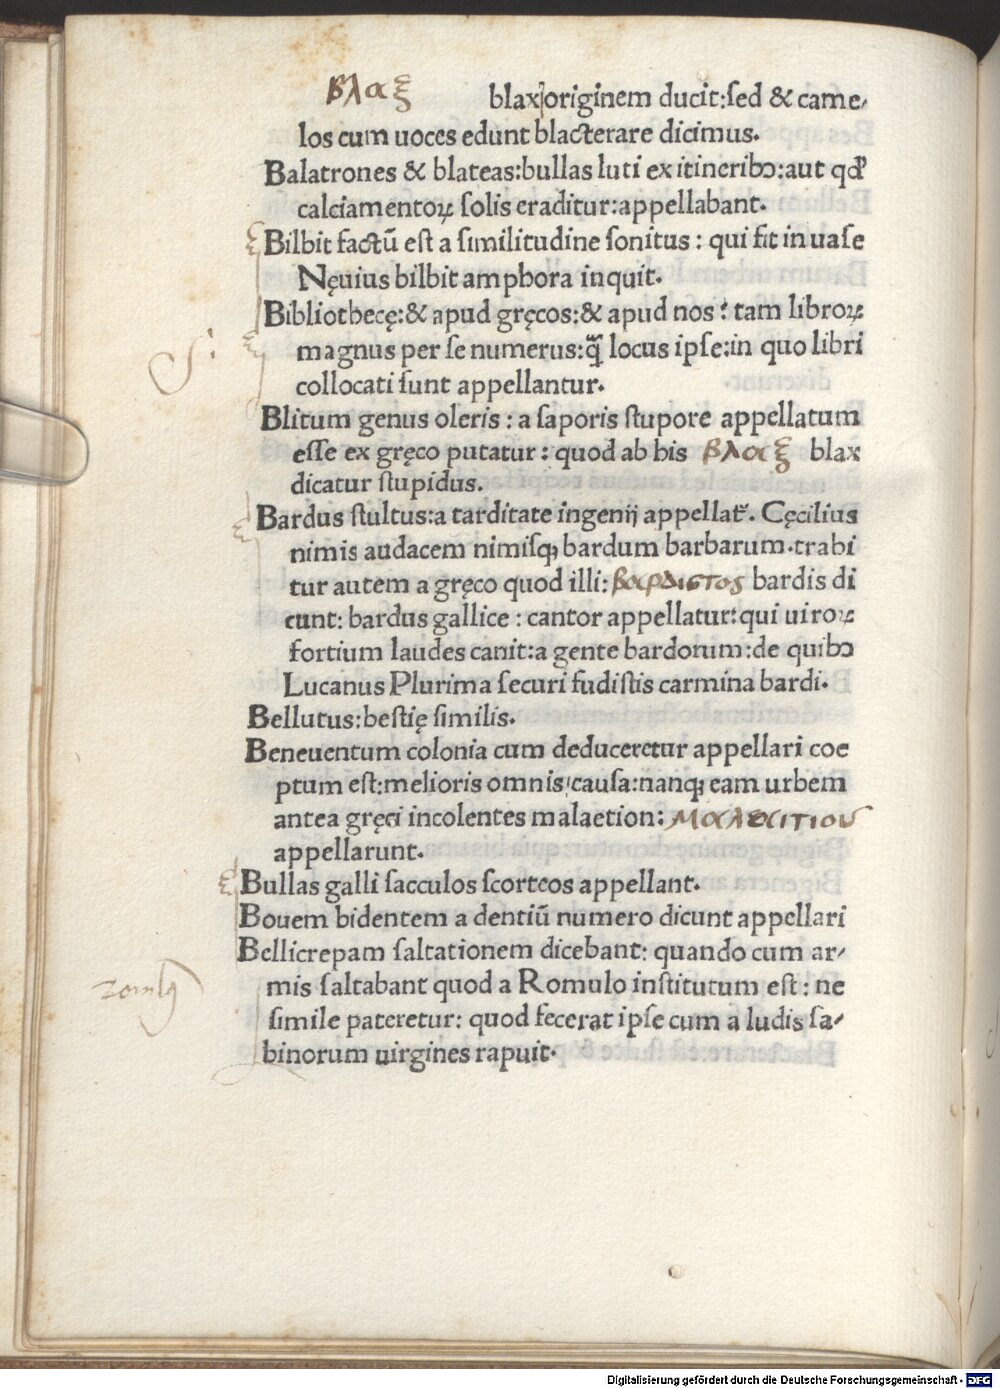 βλαξ blax originem ducit:sed & came-
los cum uoces edunt blacterare dicimus.
Balatrones & blateas:bullas luti ex itineribꝰ:aut qd'
calciamentoꝝ solis eraditur:appellabant.
Bilbit factū est a similitudine sonitus : qui fit in uase
Nęuius bilbit amphora inquit.
Bibliothecę:& apud gręcos:& apud nos : tam libroꝝ
magnus per se numerus:q̄ locus ipse:in quo libri
S:
collocati sunt appellantur.
Blitum genus oleris : a saporis stupore appellatum
esse ex gręco putatur : quod ab his βλαξ blax
dicatur stupidus.
Bardus stultus:a tarditate ingenij appellat͛. Cęcilius
nimis audacem nimisqꝫ bardum barbarum.trahi
tur autem a gręco quod illi:βαρδιστος bardis di
cunt: bardus gallice : cantor appellatur:qui uiroꝝ
fortium laudes canit:a gente bardorum:de quibꝰ
Lucanus Plurima securi fudistis carmina bardi.
Bellutus:bestię similis.
Beneuentum colonia cum deduceretur appellari coe
ptum est:melioris omnis causa:nanqꝫ eam urbem
antea gręci incolentes malaetion: μαλεαιτιου
appellarunt.
Bullas galli sacculos scorteos appellant.
Bouem bidentem a dentiū numero dicunt appellari
Bellicrepam saltationem dicebant: quando cum ar-
mis saltabant quod a Romulo institutum est : ne
simile pateretur: quod fecerat ipse cum a ludis sa-
binorum uirgines rapuit.
Digitalisierung gefördert durch die Deutsche Forschungsgemeinschaft - DFG